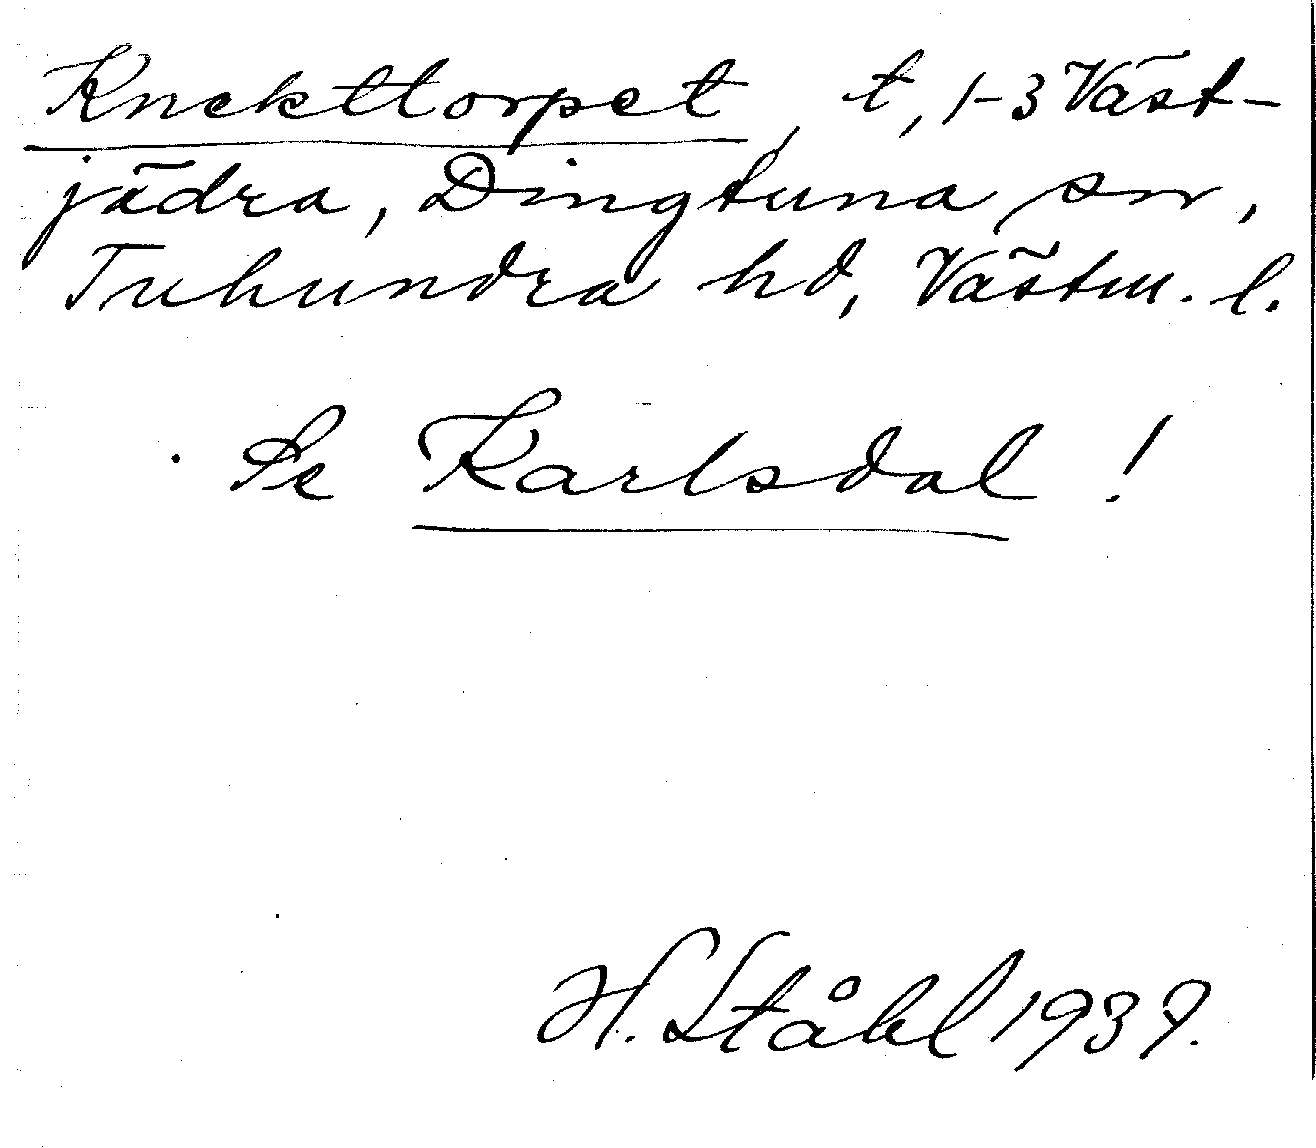 Knekttorpet, t, 1-3 Väst-
jädra, Dingtuna sn,
Tuhundra hd, Västm. l.
Se Karlsdal!
H. Ståhl 1939.